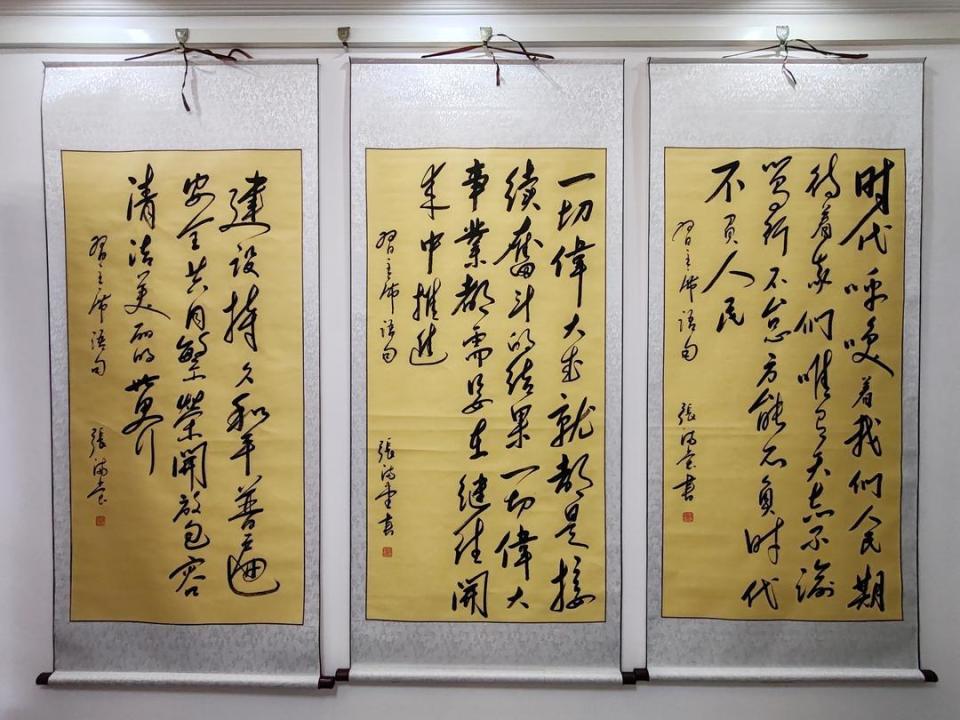 时代呼唤着我们人民期
待着我们唯有矢志不渝
笃行不怠方能不负时代
不负人民
習主席语句
張满堂書
一切偉大成就都是接
续奮斗的结果一切偉大
事業都需要在继往開
来中推进
習主席语句
張满堂書
建设持久和平普遍
安全共同繁榮開放包容
清洁美丽的世界
習主席语句
張满堂